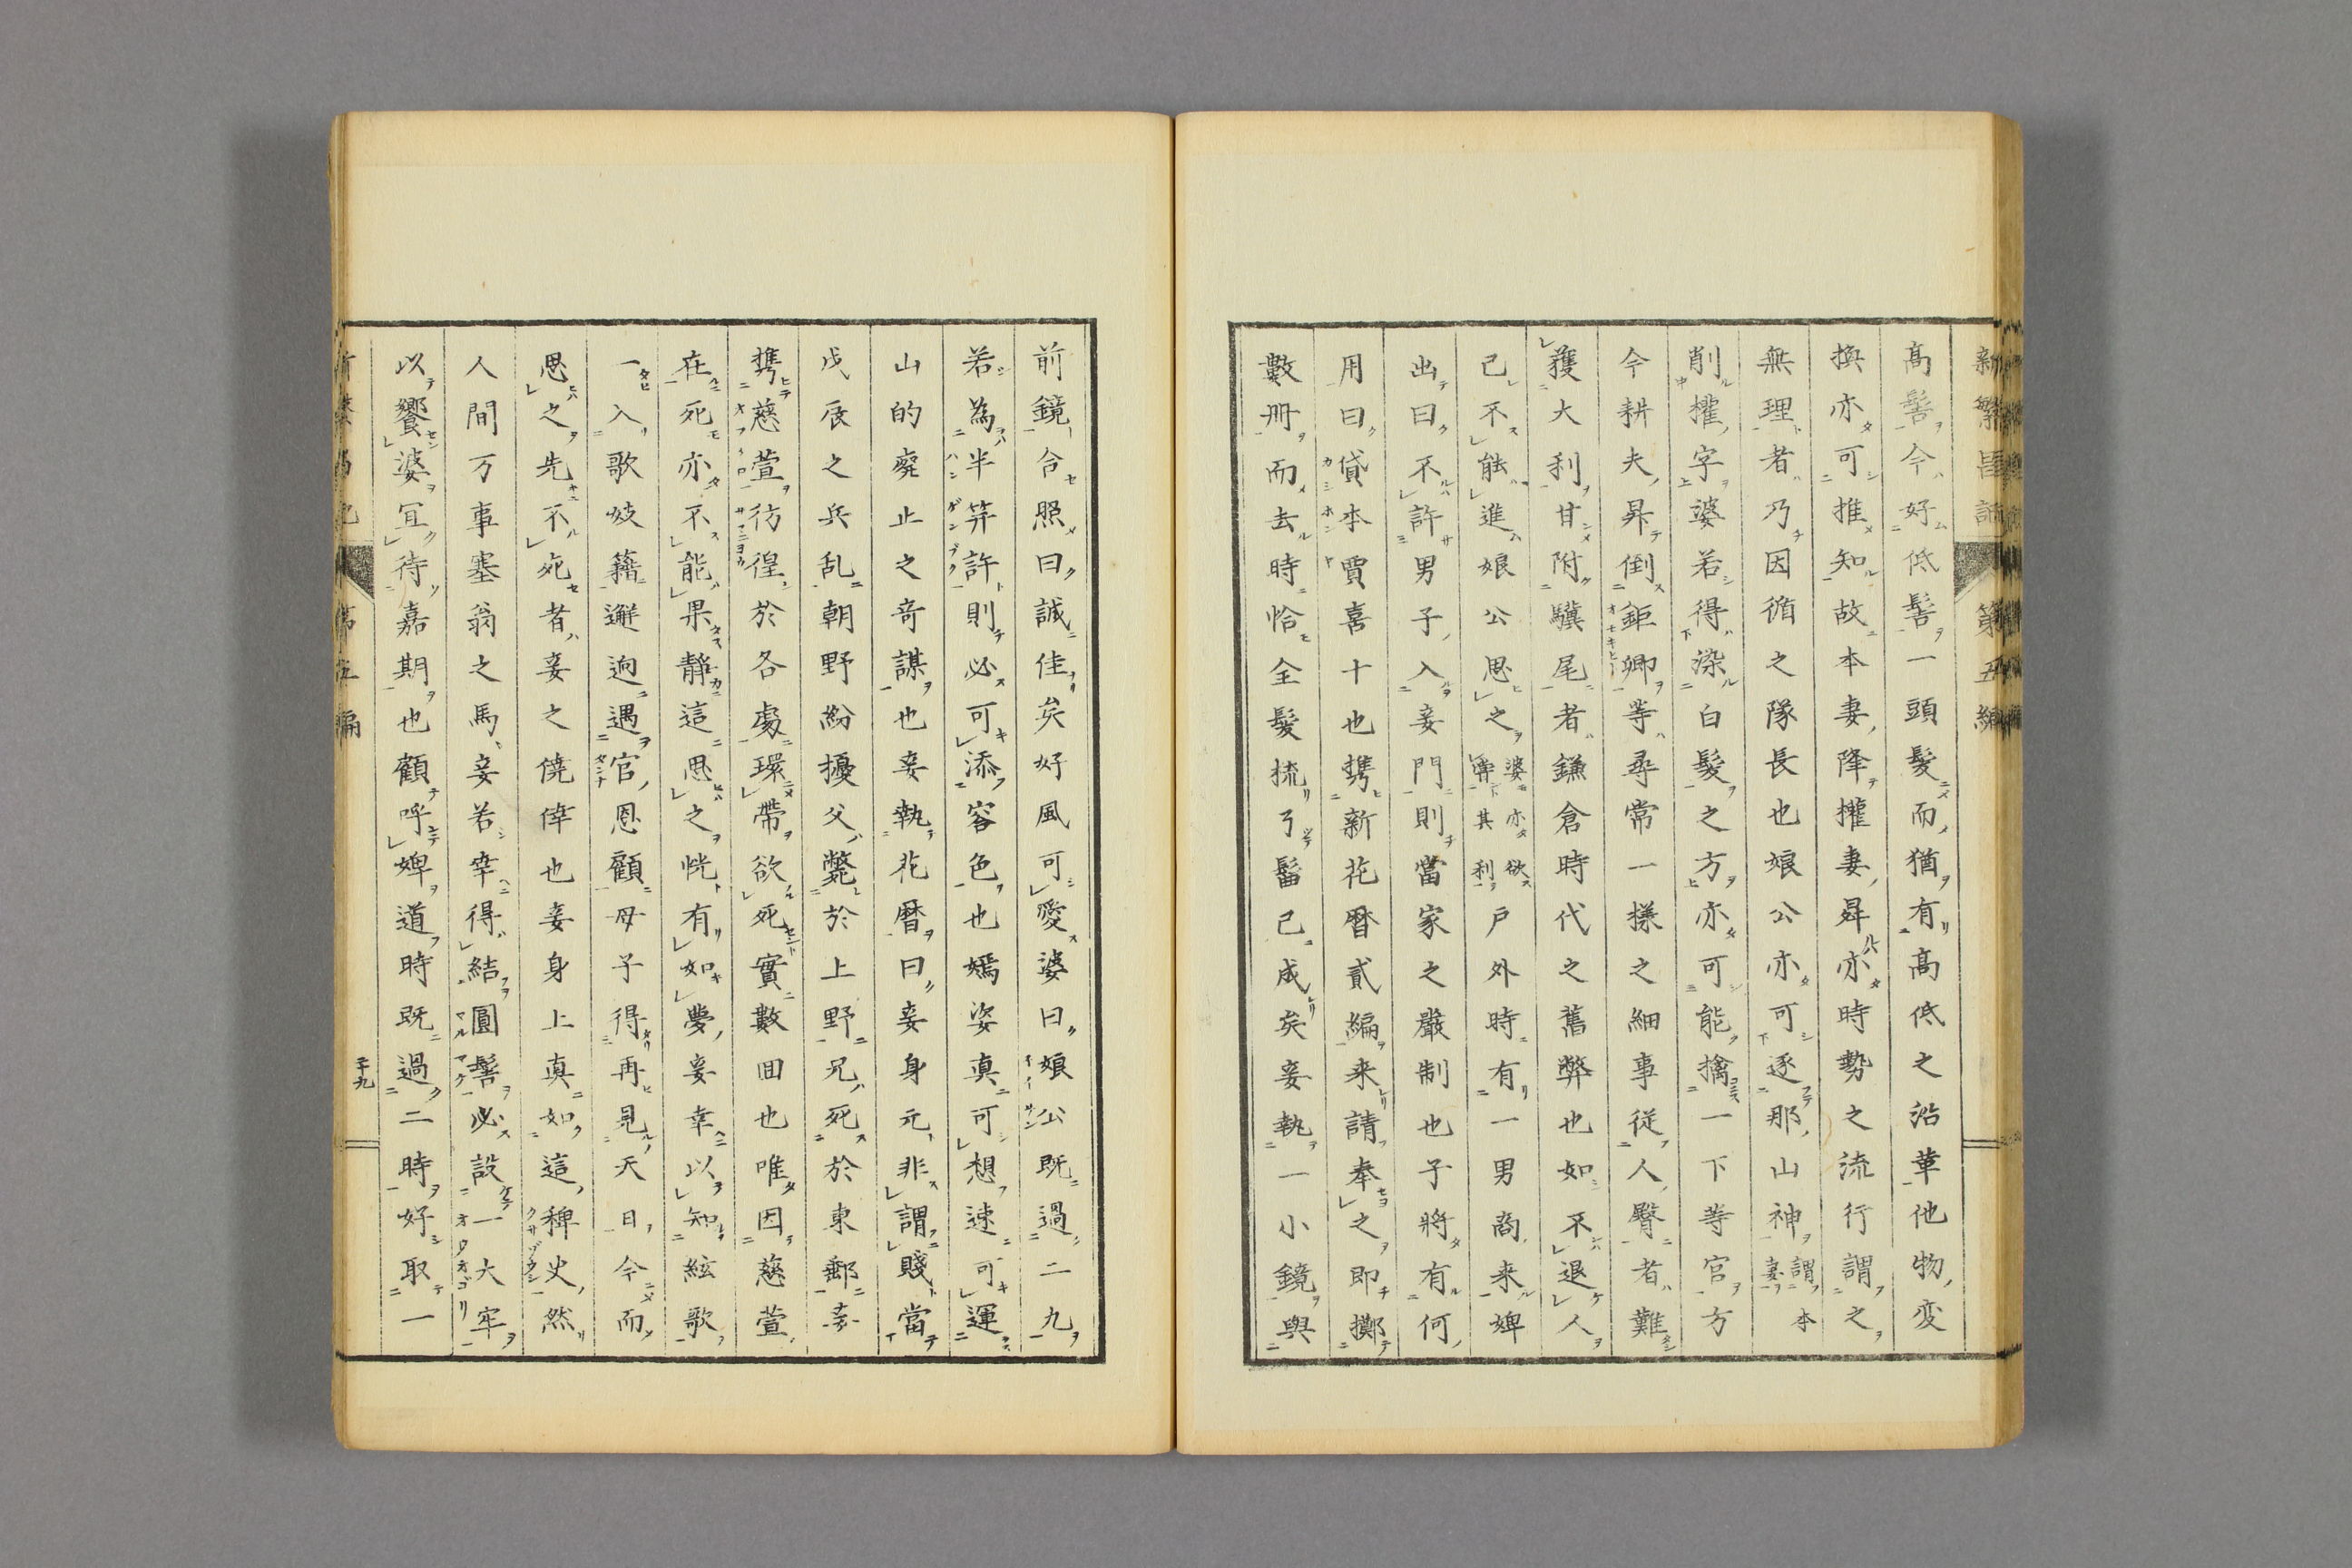 新繁昌記 第五編
髙髻今好低髻一頭髮而猶有髙低之沿革他物変
換亦可推知故本妻降權妻昇亦時勢之流行謂之
無理者乃因循之隊長也娘公亦可逐那山神謂本妻
削權字婆若得染白髮之方亦可能擒一下等官方
今耕夫昇倒鉅卿等尋常一樣之細事從人臀者難
獲大利甘附驥尾者鎌倉時代之舊弊也如不退人
己不能進娘公思之婆亦欲專其利戸外時有一男商来婢
出曰不許男子入妾門則當家之嚴制也子將有何
用曰貸本賈喜十也携新花暦貳編来請奉之即擲
數冊而去時恰全髮梳了髷已成矣妾執一小鏡與
前鏡合照曰誠佳矣好風可愛婆曰娘公既過二九
若為半笄許則必可添容色也嫣姿真可想速可運
山的廃止之竒謀也妾執花暦曰妾身元非謂賤當
戊辰之兵乱朝野紛擾父斃於上野兄死於東鄙妾
携慈萱彷徨於各處環帶欲死實數回也唯因慈萱
在死亦不能果靜這思之恍有如夢妾幸以知絃歌
一入歌妓籍邂逅遇官恩顧母子得再見天日今而
思之先不死者妾之僥倖也妾身上真如這稗史然
人間万事塞翁之馬妾若幸得結圓髻必設一大牢
以饗婆冝待嘉期也顧呼婢道時既過二時好取一
二十九